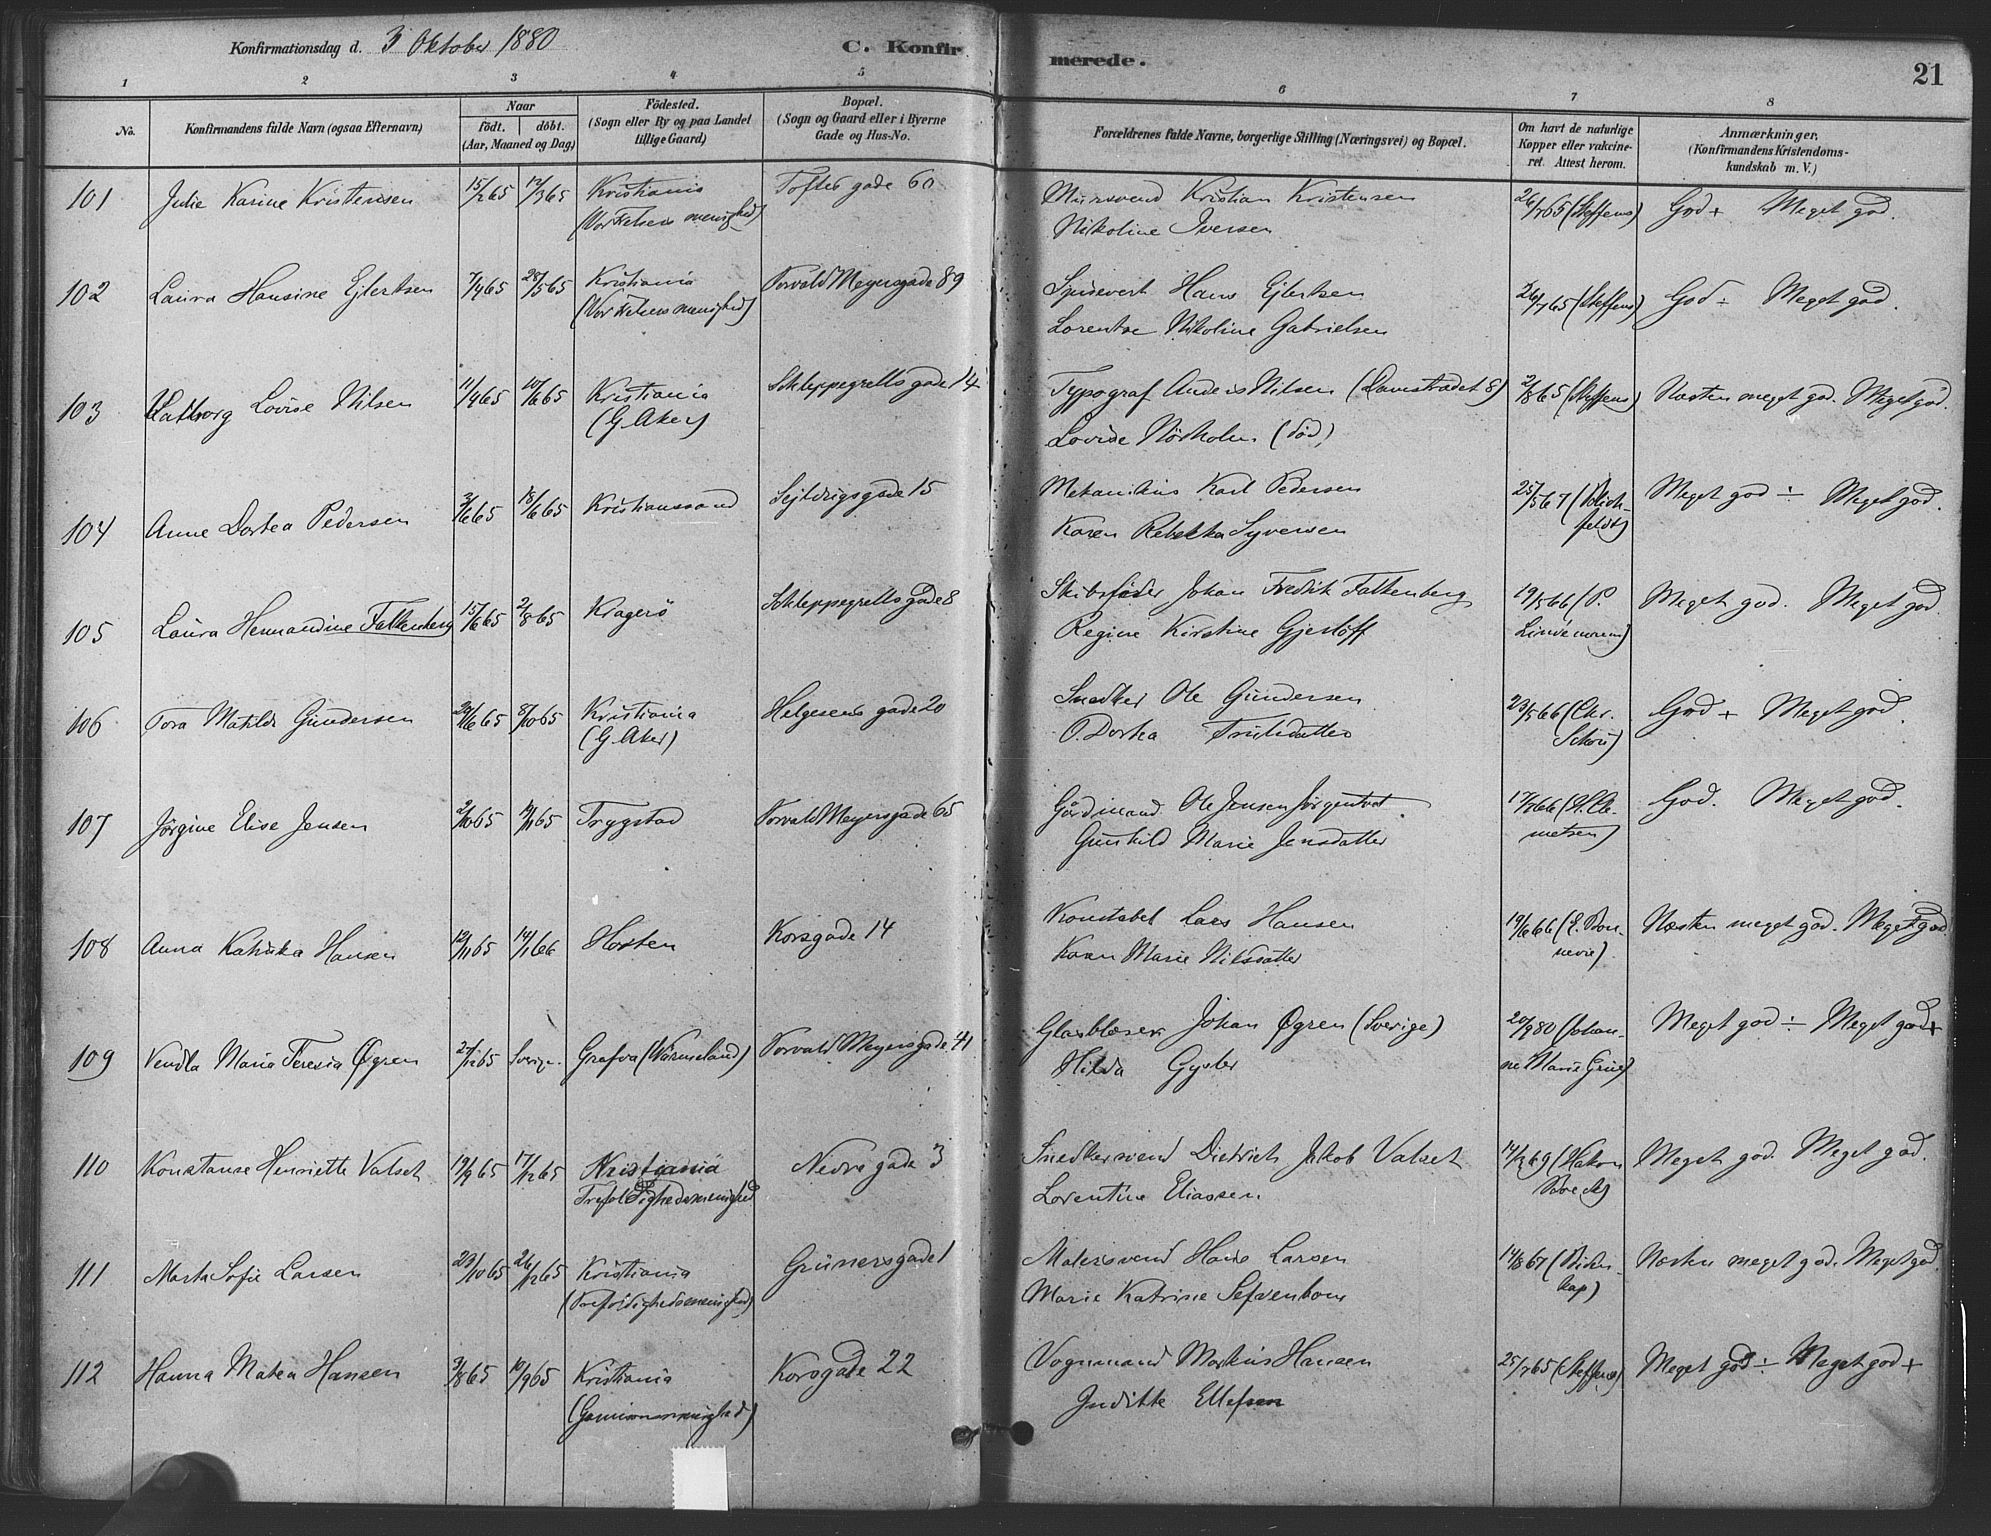 Konfirmationsdag d. 3 Oktober 1880
C. Konfirmerede.
21
1 2 3 4 5 6 7 8
No.
Konfirmandens fulde Navn (ogsaa Efternavn)
Naar
födt. döbt.
(Aar, Maaned og Dag)
Födested.
(Sogn eller By og paa Landet
tillige Gaard)
Bopæl.
(Sogn og Gaard eller i Byerne
Gade og Hus-No.
Forældrenes fulde Navne, borgerlige Stilling (Næringsvei) og Bopæl.
Om havt de naturlige
Kopper eller vakcine-
ret. Attest herom.
Anmærkninger.
(Konfirmandens Kristendoms-
kundskab m. V.)
101 Julie Karine Kristensen 15/2 65 12/3 65 Kristiania Toftes gade 60 Mursvend Kristian Kristensen 26/7 65 (Steffens) God + Meget god.
(Vor Frelsers menighed) Nikoline Iversen
102 Laura Hansine Ejlertsen 7/4 65 28/5 65 Kristiania Torvald Meyersgade 89 Hans Ejlertsen 26/7 65 (Steffens) God ÷ Meget god.
(Vor Frelsers menighed) Lorentse Nikoline Gabrielsen
103 Valborg Lovise Nilsen 11/4 65 10/6 65 Kristiania Schleppegrells gade 14 Typograf Anders Nilsen 2/8 65 (Steffens) Næsten meget god. Meget god.
(G. Aker) Lovise (död)
104 Anne Dortea Pedersen 3/6 65 18/6 65 Kristianssand Sejldugsgade 15 Mekanikus Karl Pedersen 25/5 67 (Blich-
feldt) Meget god ÷ Meget god.
Karen Rebekka Syversen
105 Laura Hermandine Falkenberg 15/6 65 2/8 65 Kragerö Schleppegrells gade 8 Skibsföder Johan Fredrik Falkenberg 19/5 66 (P.
Meget god. Meget god.
Regine Kirstine Gjerlöff
106 Tora Matilde Gundersen 20/6 65 8/10 65 Kristiania Helgesens gade 20 Snedker Ole Gundersen 23/5 66 (Chr.
Schou) God + Meget god.
(G. Aker) O. Dortea Trulsdatter
107 Jörgine Elise Jensen 2/10 65 19/11 65 Trygstad Torvald Meyersgade 65 Gårdmand Ole Jensen Jörgentvet 17/7 66 (H. Cle-
metsen) God. Meget god.
Gunhild Marie Jensdatter
108 Anna Katinka Hansen 12/11 65 14/1 66 Horten Korsgade 14 Konstabel Lars Hansen 19/6 66 (E. Bon-
nevie) Næsten meget god. Meget god
Karen Marie Nilsdatter
109 Vendla Maria Teresia Øgren 27/12 65 Sverige. Grafva (Värmeland) Torvald Meyersgade 41 Glasblæser Johan Øgren (Sverige) 20/9 80 (Johan-
ne Marie Grue) Meget god ÷ Meget god +
Hilda
110 Konstanse Henriette Valset 19/9 65 17/12 65 Kristiania Nedre gade 3 Snedkersvend Dietrich Jakob Valset 14/2 69 (Hakon
Boeck) Meget god. Meget god.
Trefoldighedsmenighed Lorentine Eliassen
111 Marta Sofie Larsen 23/10 65 26/12 65 Kristiania Grünersgade 1 Malersvend Hans Larsen 14/8 67 Næsten meget god. Meget god.
(Trefoldighedsmenighed) Marie Katrine
112 Hanna Matea Hansen 3/8 65 10/9 65 Kristiania Korsgade 22 Vognmand Markus Hansen 25/7 65 (Steffens) Meget god ÷ Meget god +
(Garnisonsmenighed) Juditte Ellefsen